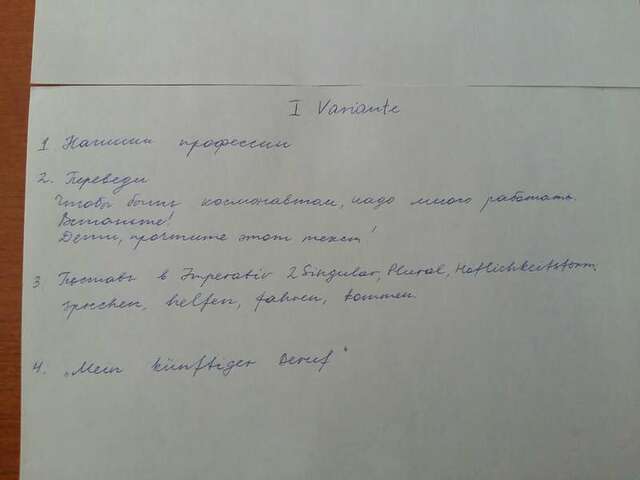 I Variante
1. Напиши профессии
2. Переведи
Чтобы быть космонавтом, надо много работать.
Встаньте!
Дети, прочтите этот текст!
3. Поставь в Imperativ 2 Singular, Plural, Höflichkeitsform.
sprechen, helfen, fahren, kommen.
4. „Mein künftiger Beruf"